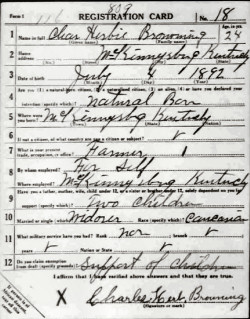 Form 1
REGISTRATION CARD
No. 18
1 Name in full Char Herbie Browning
(Given name) (Family name)
Age, in yrs. 24
2 Home address McKinneysburg Kentucky
3 Date of birth July 4 1892
(Month) (Day) (Year)
4 Natural Born
5 Where were you born? McKinneysburg Kentucky
6 If not a citizen, of what country are you a citizen or subject?
7 What is your present trade, occupation, or office? Farmer
8 By whom employed? For self
Where employed? McKinneysburg Kentucky
9 Have you a father, mother, wife, child under 12, or a sister or brother under 12, solely dependent on you for support (specify which)?
Two children
10 Married or single (which)? Widower Race (specify which)? Caucasian
11 What military service have you had? Rank non ; branch
years ; Nation or State
12 Do you claim exemption from draft (specify grounds)? Support of Children
I affirm that I have verified above answers and that they are true.
X Charles Herb. Browning
(Signature or mark)